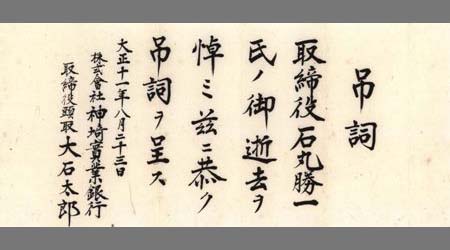 吊詞
取締役石丸勝一
氏ノ御逝去ヲ
悼ミ茲ニ恭ク
吊詞ヲ呈ス
大正十一年八月二十三日
株式會社神埼實業銀行
取締役頭取大石太郎